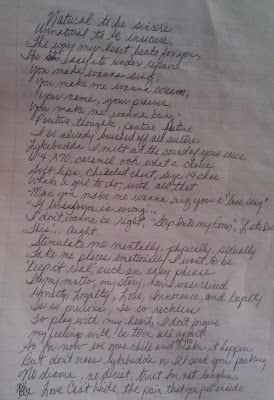 Natural to be sincere
Unnatural to be insecure,
The way my heart beats for you,
It's safe its under repair
You make me wanna sing,
you make me wanna scream,
your name, your praise,
You make me wanna bring,
Positive thoughts, positive future
I've already brushed off all suitors
Zykebudda I melt at the sound of your voice
6'4, 270, caramel ooh what a choice
Soft lips, chiseled chest, size 14 shoe
Whats a girl to do, with all that
Man you make me wanna sing you a "love song"
If loving you is wrong...
I don't wanna be right, "Step Into my Room", "Lets Do
This... Right
Stimulate me mentally, physically, sexually
Take me places emotionally I want to be
Keep it real, such an easy phrase
my motto, mystory, how I was raised
Honesty, Loyalty, Love, Innocence, and Loyalty
Is so precious, is so reckless
So play with my heart, I don't forgive
my feelings will be torn all apart
So for now we gone chill and make it happen
But don't cross zykebudda or I'll send you packing
No drama, no deceit, trust I'm not laughin
Love Cant hide, the pain that you feel inside